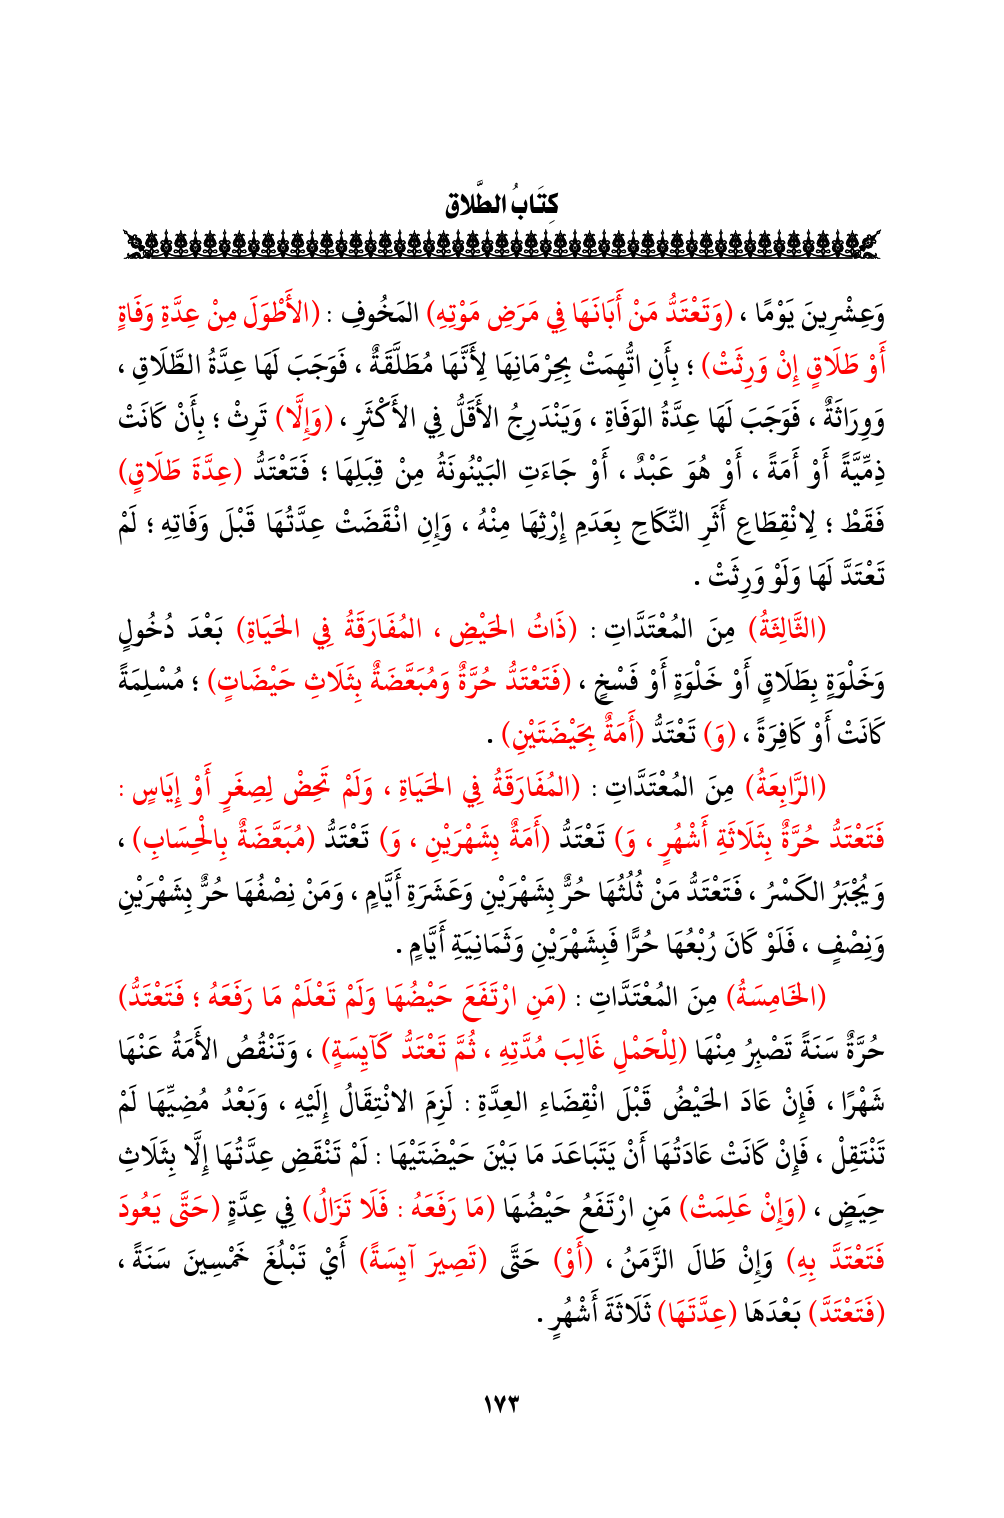 كِتَابُ الطَّلاق
وَعِشْرِينَ يَوْمًا ، (وَتَعْتَدُّ مَنْ أَبَانَهَا فِي مَرَضِ مَوْتِهِ) المَخُوفِ : (الأَطْوَلَ مِنْ عِدَّةِ وَفَاةٍ
أَوْ طَلَاقٍ إِنْ وَرِثَتْ) ؛ بِأَنِ اتُّهِمَتْ بِحِرْمَانِهَا لِأَنَّهَا مُطَلَّقَةٌ ، فَوَجَبَ لَهَا عِدَّةُ الطَّلَاقِ ،
وَوِرَاثَةٌ ، فَوَجَبَ لَهَا عِدَّةُ الوَفَاةِ ، وَيَنْدَرِجُ الأَقَلُّ فِي الأَكْثَرِ ، (وَإِلَّا) تَرِثْ ؛ بِأَنْ كَانَتْ
ذِمِّيَّةً أَوْ أَمَةً ، أَوْ هُوَ عَبْدٌ ، أَوْ جَاءَتِ البَيْنُونَةُ مِنْ قِبَلِهَا ؛ فَتَعْتَدُّ (عِدَّةَ طَلَاقٍ)
فَقَطْ ؛ لِانْقِطَاعِ أَثَرِ النِّكَاحِ بِعَدَمِ إِرْثِهَا مِنْهُ ، وَإِنِ انْقَضَتْ عِدَّتُهَا قَبْلَ وَفَاتِهِ ؛ لَمْ
تَعْتَدَّ لَهَا وَلَوْ وَرِثَتْ .
(الثَّالِثَةُ) مِنَ المُعْتَدَّاتِ : (ذَاتُ الحَيْضِ ، المُفَارَقَةُ فِي الحَيَاةِ) بَعْدَ دُخُولٍ
وَخَلْوَةٍ بِطَلَاقٍ أَوْ خَلْوَةٍ أَوْ فَسْخٍ ، (فَتَعْتَدُّ حُرَّةٌ وَمُبَعَّضَةٌ بِثَلَاثِ حَيْضَاتٍ) ؛ مُسْلِمَةً
كَانَتْ أَوْ كَافِرَةً ، (وَ) تَعْتَدُّ (أَمَةٌ بِحَيْضَتَيْنِ) .
(الرَّابِعَةُ) مِنَ المُعْتَدَّاتِ : (المُفَارَقَةُ فِي الحَيَاةِ ، وَلَمْ تَحِضْ لِصِغَرٍ أَوْ إِيَاسٍ :
فَتَعْتَدُّ حُرَّةٌ بِثَلَاثَةِ أَشْهُرٍ ، وَ) تَعْتَدُّ (أَمَةٌ بِشَهْرَيْنِ ، وَ) تَعْتَدُّ (مُبَعَّضَةٌ بِالْحِسَابِ) ،
وَيُجْبَرُ الكَسْرُ ، فَتَعْتَدُّ مَنْ ثُلُثُهَا حُرٌّ بِشَهْرَيْنِ وَعَشَرَةِ أَيَّامٍ ، وَمَنْ نِصْفُهَا حُرٌّ بِشَهْرَيْنِ
وَنِصْفٍ ، فَلَوْ كَانَ رُبْعُهَا حُرًّا فَبِشَهْرَيْنِ وَثَمَانِيَةِ أَيَّامٍ .
(الخَامِسَةُ) مِنَ المُعْتَدَّاتِ : (مَنِ ارْتَفَعَ حَيْضُهَا وَلَمْ تَعْلَمْ مَا رَفَعَهُ ؛ فَتَعْتَدُّ)
حُرَّةٌ سَنَةً تَصْبِرُ مِنْهَا (لِلْحَمْلِ غَالِبَ مُدَّتِهِ ، ثُمَّ تَعْتَدُّ كَآيِسَةٍ) ، وَتَنْقُصُ الأَمَةُ عَنْهَا
شَهْرًا ، فَإِنْ عَادَ الحَيْضُ قَبْلَ انْقِضَاءِ العِدَّةِ : لَزِمَ الانْتِقَالُ إِلَيْهِ ، وَبَعْدُ مُضِيِّهَا لَمْ
تَنْتَقِلْ ، فَإِنْ كَانَتْ عَادَتُهَا أَنْ يَتَبَاعَدَ مَا بَيْنَ حَيْضَتَيْهَا : لَمْ تَنْقَضِ عِدَّتُهَا إِلَّا بِثَلَاثِ
حِيَضٍ ، (وَإِنْ عَلِمَتْ) مَنِ ارْتَفَعُ حَيْضُهَا (مَا رَفَعَهُ : فَلَا تَزَالُ) فِي عِدَّةٍ (حَتَّى يَعُودَ
فَتَعْتَدَّ بِهِ) وَإِنْ طَالَ الزَّمَنُ ، (أَوْ) حَتَّى (تَصِيرَ آيِسَةً) أَيْ تَبْلُغَ خَمْسِينَ سَنَةً ،
(فَتَعْتَدَّ) بَعْدَهَا (عِدَّتَهَا) ثَلَاثَةَ أَشْهُرٍ .
١٧٣